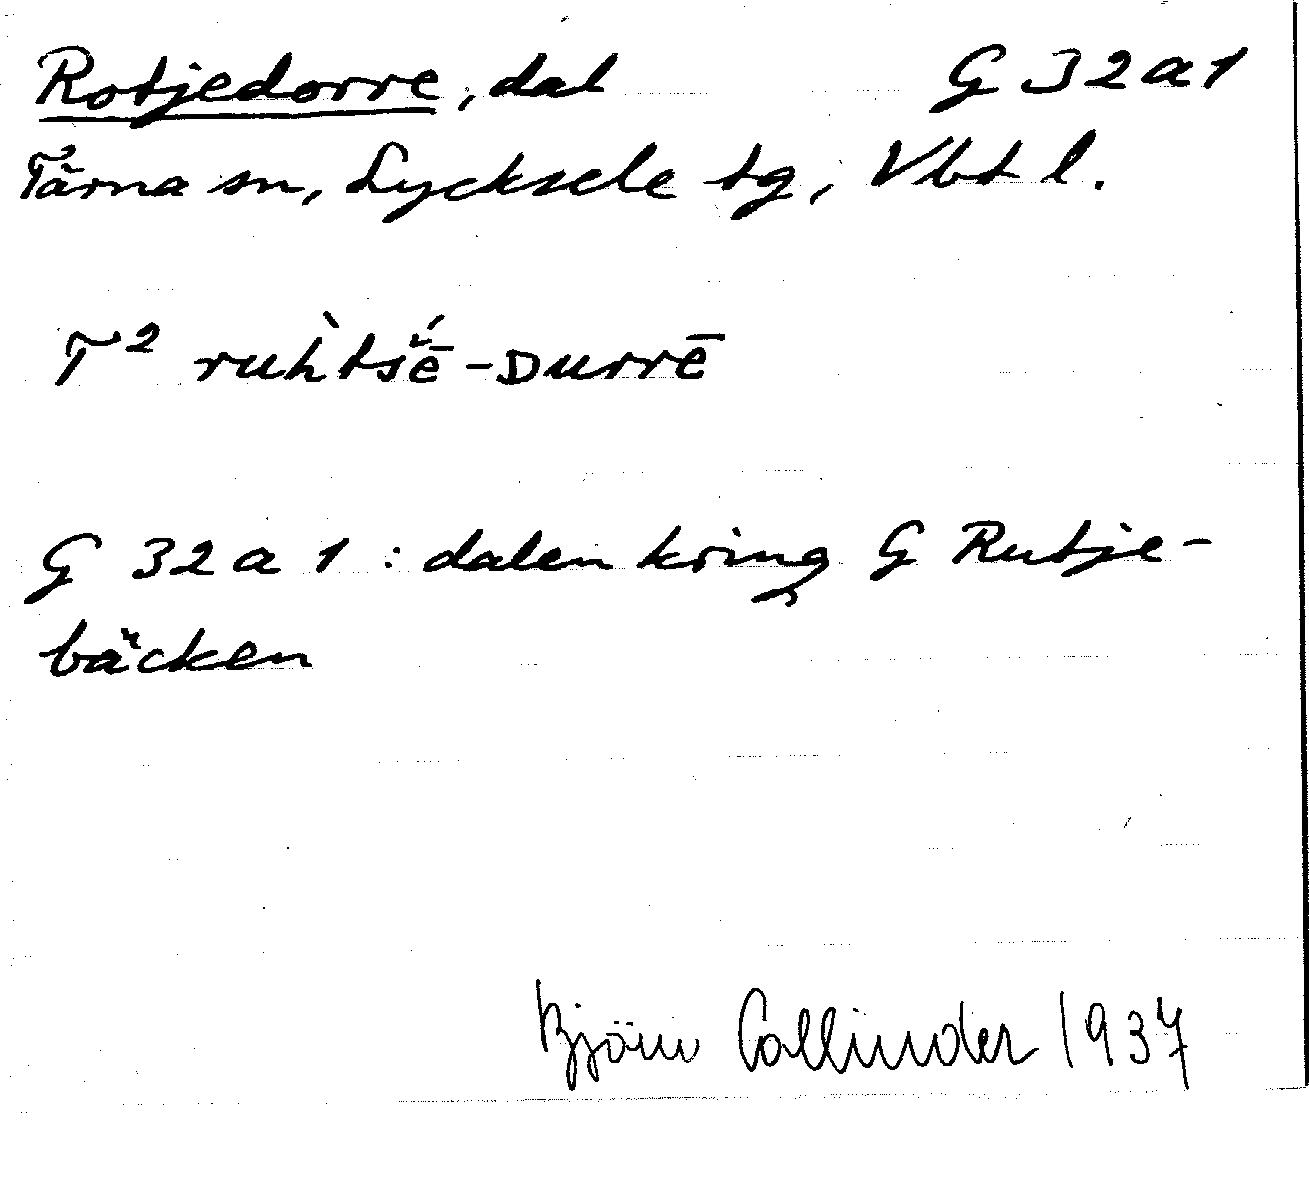 Rotjedorre, dal G 32 a 1
Tärna sn, Lycksele tg, Vbt l.
T² ruh̀tsḗ-Durrē
G 32 a 1 : dalen kring G Rutje-
bäcken
Björn Collinder 1937